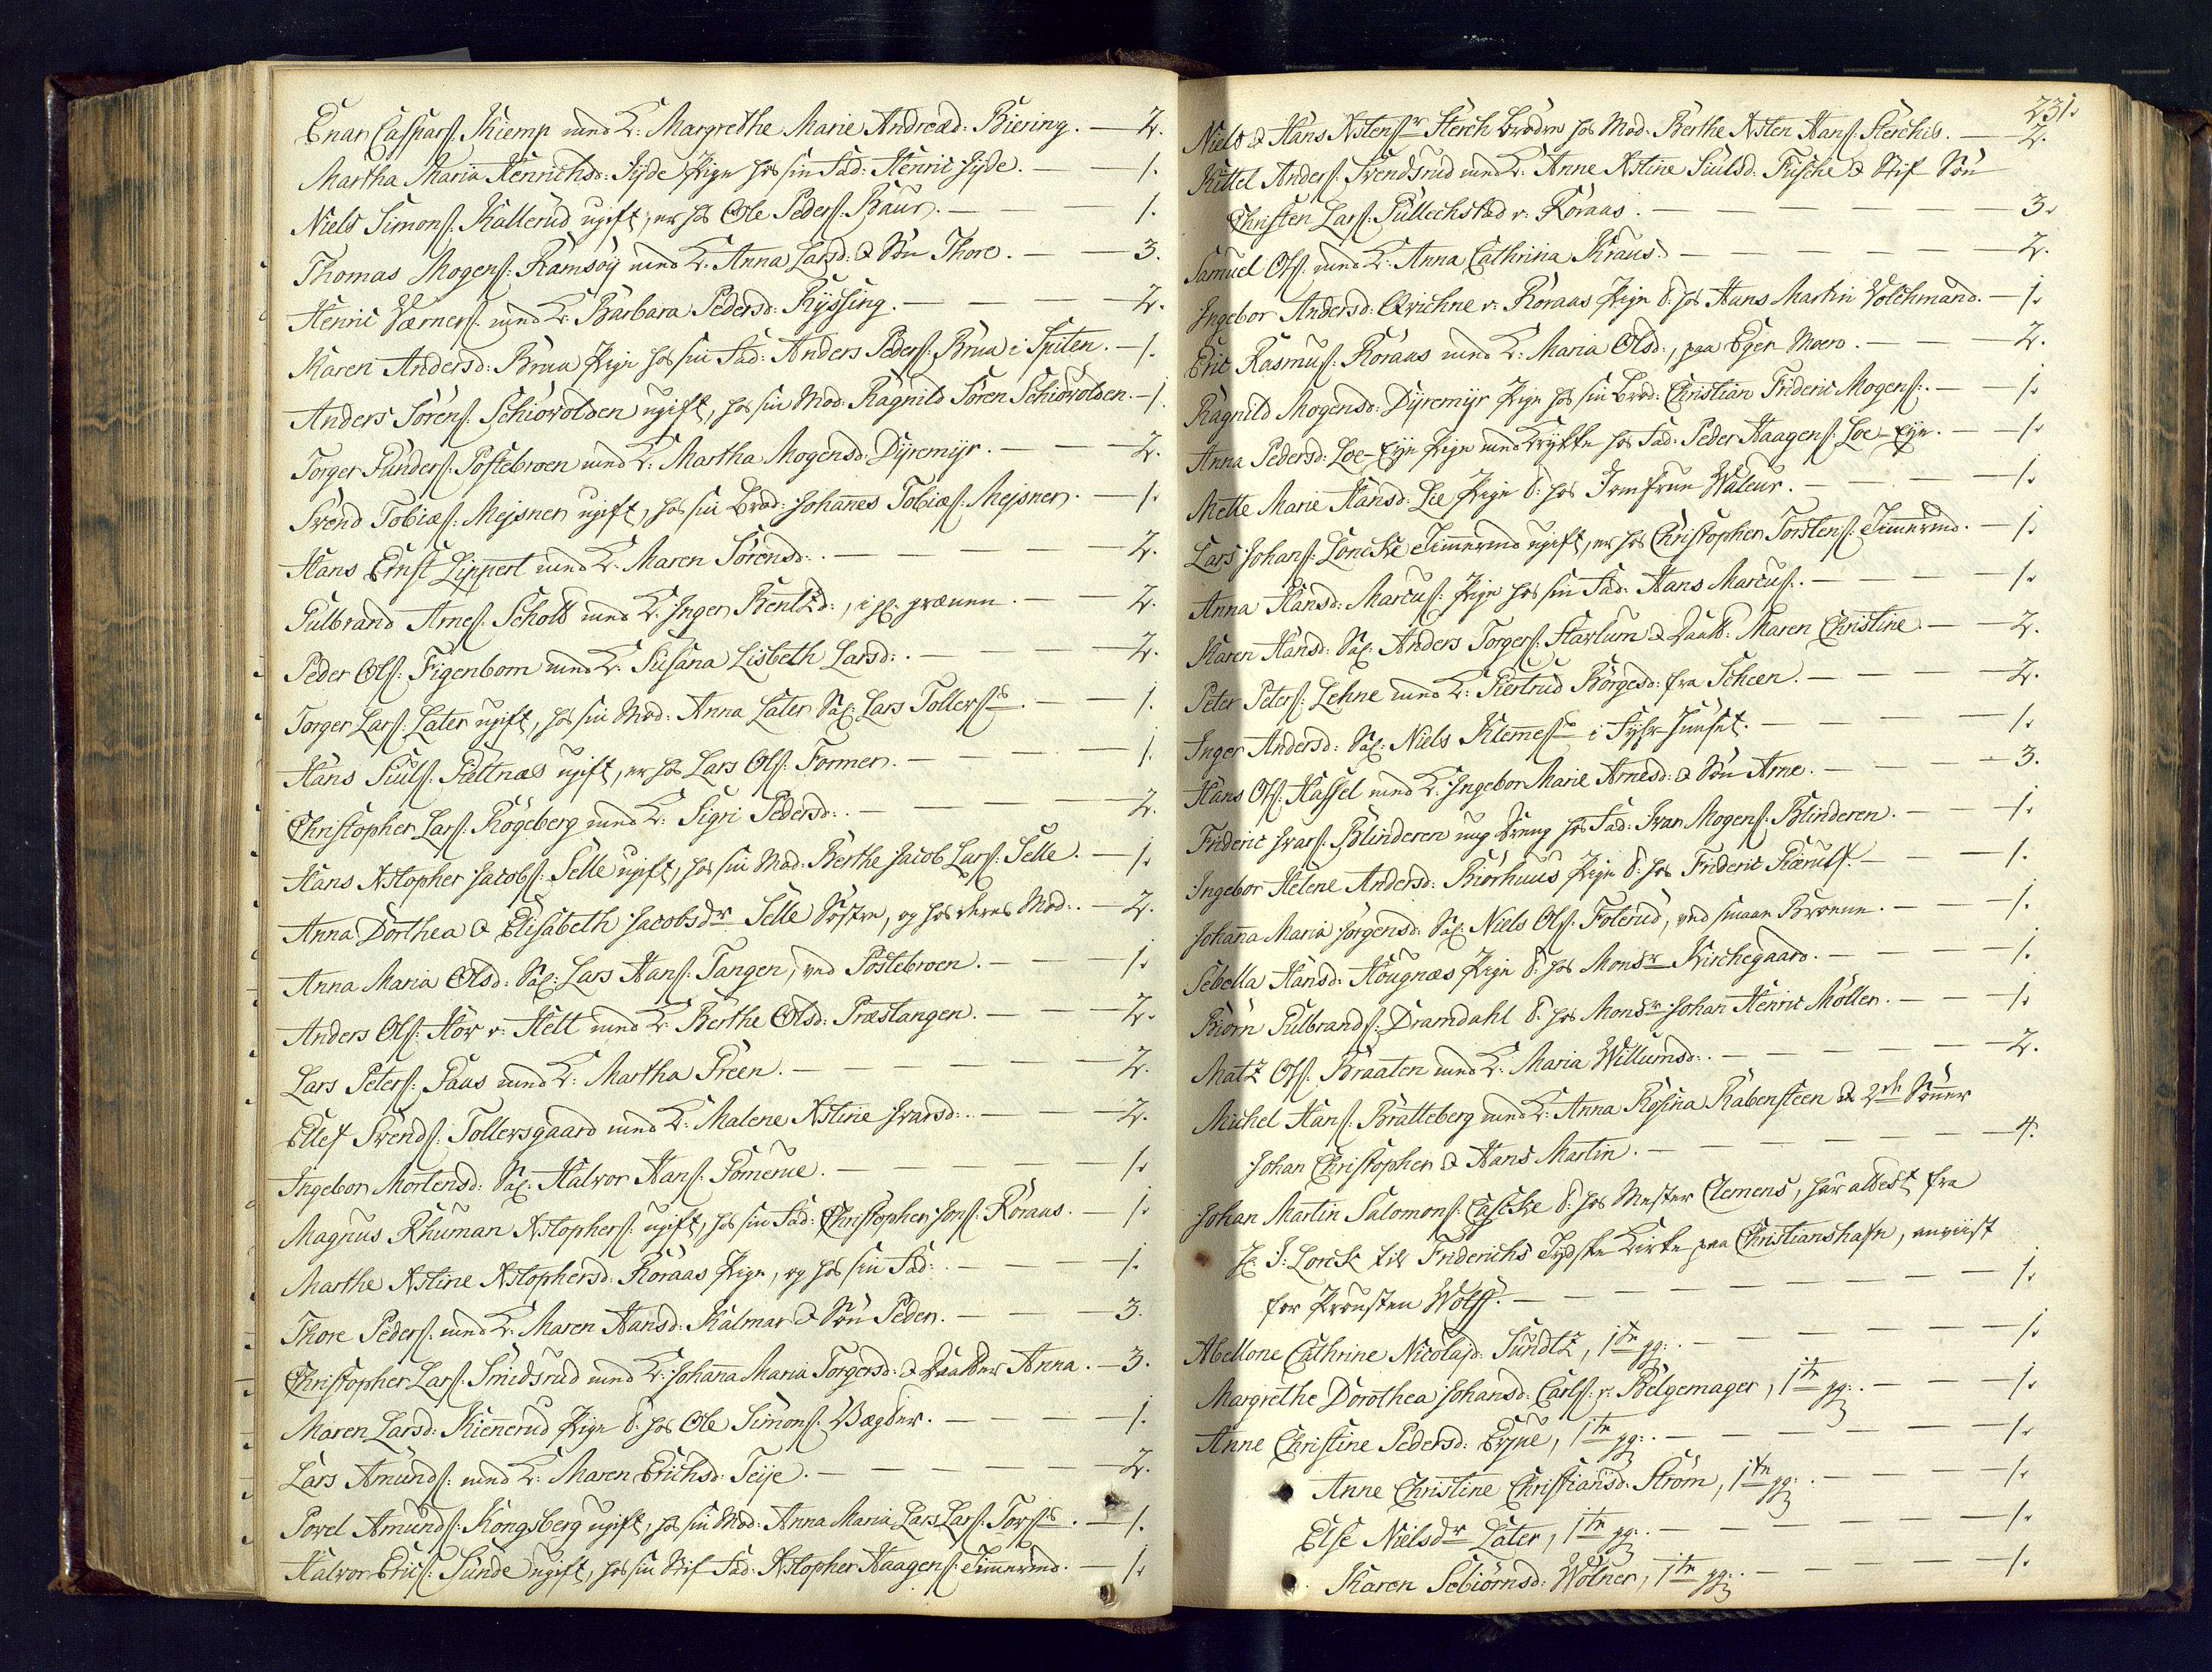 Enar Caspars: Kiemp med K: Margrethe Marie Andreæd: Biering. — 2.
Martha Maria Henrichsd: Jyde Pige hos sin Fad: Henric Jyde. — 1.
Niels Simons: Kallerud ugift, er hos Ole Peders: Baur. — 1.
Thomas Mogens: Ramsøy med K: Anna Larsd: & Søn Thore. — 3.
Henric Værners: med K: Barbara Pedersd: Ryssing. — 2.
Karen Andersd: Brua Pige hos sin Fad: Anders Peders: Brua i Spiten. — 1.
Anders Sørens: Schiøvolden ugift, hos sin Mod: Ragnild Søren Schiøvolden. — 1.
Torger Gunders: Postebroen med K: Martha Mogensd: Dyremyr. — 2.
Svend Tobiæs: Mejsner ugift, hos sin Brod: Johannes Tobiæs: Mejsner. — 1.
Hans Ernst Lippert med K: Maren Sørensd: — 2.
Gulbrand Arnes: Schott med K: Inger Bentzd:, — 2.
Peder Ols: Figenbom med K: Susana Lisbeth Larsd: — 2.
Torger Lars: Later ugift, hos sin Mod: Anna Later Sal: Lars Tollers: — 1.
Hans Siuls: Gieltnæs ugift, er hos Lars Ols: Former. — 1.
Christopher Lars: Røgeberg med K: Sigri Pedersd: — 2.
Hans Xstopher Jacobs: Selle ugift, hos sin Mod: Berthe Jacob Lars: Selle. — 1.
Anna Dorthea & Elisabeth Jacobsdr Selle Søstre, og hos deres Mod: — 2.
Anna Maria Olsd: Sal: Lars Hans: Tangen, ved Postebroen. — 1.
Anders Ols: Hov v: Helt med K: Berthe Olsd: Præstangen. — 2.
Lars Peters: Paus med K: Martha Preen. — 2.
Ellef Svends: Tollersgaard med K: Malene Xstine Ivarsd: — 2.
Ingebor Mortensd: Sal: Halvor Hans: Pomerue. — 1.
Magnus Rhuman Xstophers: ugift, hos sin Fad: Christopher Jons: Røraas. — 1.
Marthe Xstine Xstophersd: Røraas Pige, og hos sin Fad: — 1.
Thore Peders: med K: Maren Hansd: Kalmar & Søn Peder. — 3.
Christopher Lars: Smidsrud med K: Johana Maria Torgersd: & Daatter Anna. — 3.
Maren Larsd: Kiennerud Pige t: hos Ole Simons: Bægder. — 1.
Lars Amunds: med K: Maren Erichsd: Teije. — 2.
Povel Amunds: Kongsberg ugift, hos sin Mod: Anna Maria Lars Lars: — 1.
Halvor Erics: Sunde ugift, hos sin Stif Fad: Xstopher Haagens: Timermd. — 1.
231.
Niels & Hans Xstens: Sterch Brødre hos Mod: Berthe Xsten Hans: Sterchis. — 2.
Kittel Anders: Svendsrud med K: Anne Xstine Siulsd: Fusche & Stif Søn
Christen Lars: Gullichstad v: Røraas. — 3.
Samuel Ols: med K: Anna Cathrina Kraus: — 2.
Ingebor Andersd: Qvichne v: Røraas Pige t: hos Hans Martin Volchmand. — 1.
Eric Rasmus: Røraas med K: Maria Olsd:, paa Eger Moen. — 2.
Ragnild Mogensd: Dyremyr Pige hos sin Brod: Christian Frideric Mogens: — 1.
Anna Pedersd: Loe-Eje Pige med Krykke hos Fad: Peder Haagens: Loe-Eje. — 1.
Mette Marie Hansd: Lie Pige t: hos Jomfrue Waleur. — 1.
Lars Johans: Loncke Timermd ugift, er hos Christopher Torstens: Timermd. — 1.
Anna Hansd: Marcus: Pige hos sin Fad: Hans Marcus: — 1.
Karen Hansd: Sal: Anders Torgers: Starlum & Daatt: Maren Christine. — 2.
Peter Peters: Lehne med K: Giertrud Børgesd: fra Scheen. — 2.
Inger Andersd: Sal: Niels Klemes: i — 1.
Hans Ols: Hassel med K: Ingebor Marie Arnesd: & Søn Arne. — 3.
Frideric Ivars: Blinderen ung Dreng hos Fad: Ivar Mogens: Blinderen. — 1.
Ingebor Helene Andersd: Biørhuus Pige t: hos Frideric Piærulf. — 1.
Johana Maria Jørgensd: Sal: Niels Ols: Foterud, ved smaae Broerne. — 1.
Sebella Hansd: Hougnæs Pige t: hos Monsr Kirchegaard. — 1.
Biørn Gulbrands: Dramdahl t: hos Monsr Johan Henric Møller. — 1.
Matz Ols: Braaten med K: Maria Willumsd: — 2.
Michel Hans: Bratteberg med K: Anna Rosina Rabensteen & 2de Sønner
Johan Christopher & Hans Martin. — 4.
Johan Martin Salomons: Cascke t: hos Mester Clemens, har attest fra
H: J: Lorck til Friderichs Tydske Kirke paa Christianshafn, anviist
for Prousten Wolff. — 1.
Abellone Cathrine Nicolajd: Sundtz, 1te gg: — 1.
Margrethe Dorothea Johansd: Carls: v: Belgemager, 1te gg: — 1.
Anne Christine Pedersd: Eyne, 1te gg: — 1.
Anne Christine Christiansd: Strøm, 1te gg: — 1.
Else Nielsdr Later, 1te gg: — 1.
Karen Sebiørnsd: Wølner, 1te gg: — 1.